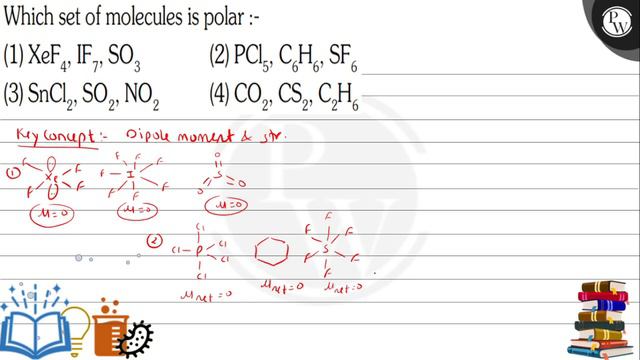 Which set of molecules is polar :-
(1) XeF₄, IF₇, SO₃ (2) PCl₅, C₆H₆, SF₆
(3) SnCl₂, SO₂, NO₂ (4) CO₂, CS₂, C₂H₆
Key concept:- Dipole moment & str.
① F F Xe F F F F F F I F F F O S O O
μ=0 μ=0 μ=0
② Cl Cl P Cl Cl Cl F F F S F F F
μnet=0 μnet=0 μnet=0
PW